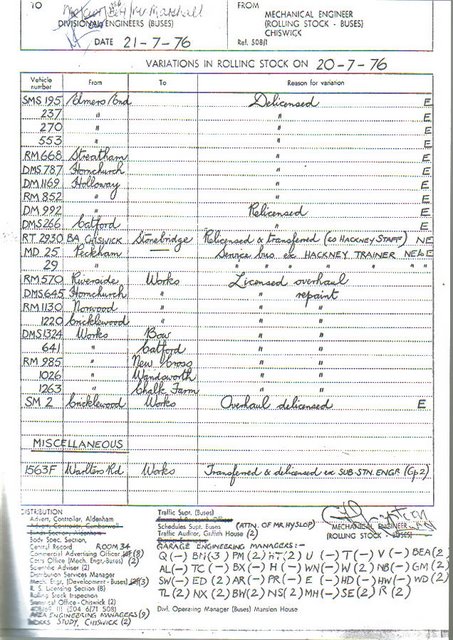 TO
FROM
DIVISIONAL ENGINEERS (BUSES)
MECHANICAL ENGINEER
(ROLLING STOCK - BUSES)
CHISWICK
DATE 21-7-76
Ref. 508/1
VARIATIONS IN ROLLING STOCK ON 20-7-76
Vehicle number From To Reason for variation
SMS 195 Almers End Delicensed E
237 " " E
270 " " E
553 " " E
RM 668 Streatham " E
DMS 787 Hornchurch " E
DM 1169 Holloway " E
RM 852 " " E
DM 992 " Relicensed E
DMS 266 Catford " E
RT 2930 BA CHISWICK Stonebridge Relicensed & Transferred (ex HACKNEY STAFF) NE
MD 25 Peckham Service bus ex HACKNEY TRAINER NE&E
29 " " " " " " "
RM 570 Riverside Works Licensed overhaul
DMS 645 Hornchurch " " repaint
RM 1130 Norwood " " "
1220 Cricklewood " " "
DMS 1324 Works Bow " "
641 " Catford " "
RM 985 " New Cross " "
1026 " Wandsworth " "
1263 " Chalk Farm " "
SM 2 Cricklewood Works Overhaul delicensed E
MISCELLANEOUS
1563F Warlters Rd Works Transferred & delicensed ex SUB-STN. ENGR. (Gp 2)
DISTRIBUTION
Advert. Controller, Aldenham
Body Spec. Section
Central Record ROOM 34
Commercial Advertising Officer (8)
Cars Office (Mech. Engr.-Buses) (2)
Scientific Adviser (2)
Distribution Services Manager
Mech. Engr. (Development - Buses) (3)
R. S. Licensing Section (8)
Rolling Stock Inspection
Statistical Office - Chiswick (2)
AREA ENGINEERING MANAGERS (9)
WORKS STUDY, CHISWICK (2)
Traffic Supt. (Buses)
Schedules Supt. Buses (ATTN. OF MR. HYSLOP)
Traffic Auditor, Griffith House (2)
GARAGE ENGINEERING MANAGERS:-
MECHANICAL ENGINEER
(ROLLING STOCK - BUSES)
Divl. Operating Manager (Buses) Mansion House